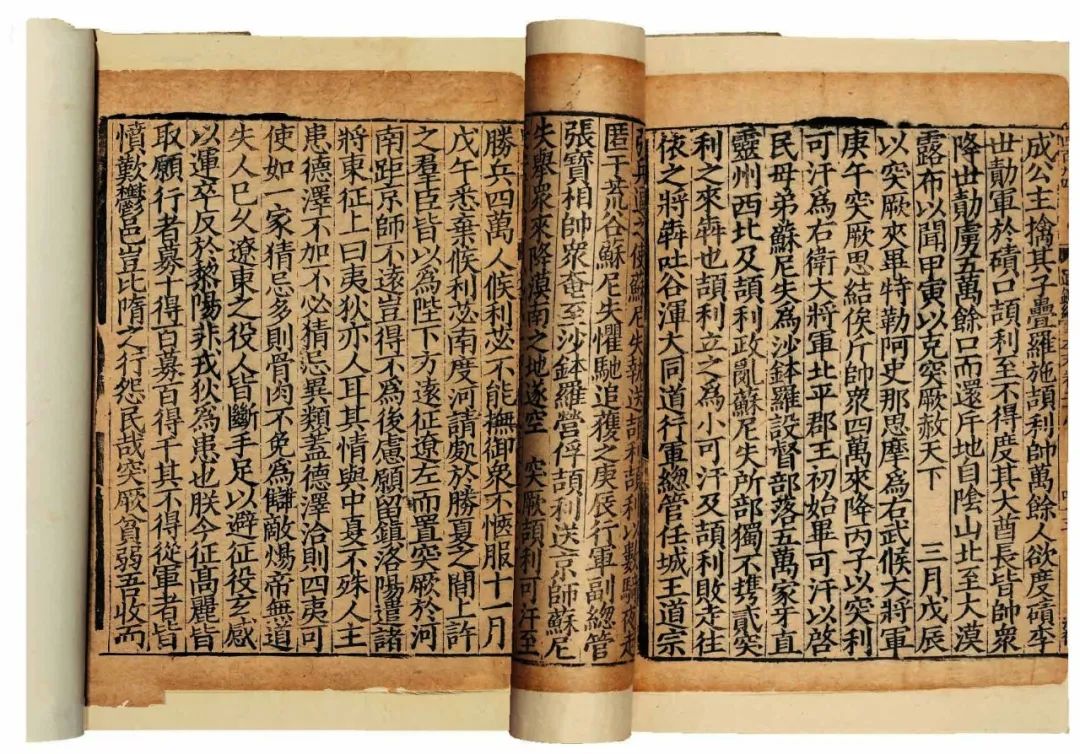 成公主擒其子疊羅施頡利帥萬餘人欲度磧李
世勣軍於磧口頡利至不得度其大酋長皆帥衆
降世勣虜五萬餘口而還斥地自陰山北至大漠
露布以聞甲寅以克突厥赦天下　三月戊辰
以突厥夾畢特勒阿史那思摩為右武候大將軍
庚午突厥思結俟斤帥衆四萬來降丙子以突利
可汗為右衛大將軍北平郡王初始畢可汗以啓
民母弟蘇尼失為沙鉢羅設督部落五萬家牙直
靈州西北及頡利政亂蘇尼失所部獨不攜貳突
利之來犇也頡利立之為小可汗及頡利敗走往
依之將犇吐谷渾大同道行軍總管任城王道宗
之使蘇尼失執送頡利頡利以數騎夜走
匿于荒谷蘇尼失懼馳追獲之庚辰行軍副總管
張寶相帥衆奄至沙鉢羅營俘頡利送京師蘇尼
失舉衆來降漠南之地遂空　突厥頡利可汗至
勝兵四萬人候利苾不能撫御衆不愜服十一月
戊午悉棄候利苾南度河請處於勝夏之間上許
之羣臣皆以為陛下方遠征遼左而置突厥於河
南距京師不遠豈得不為後慮願留鎮洛陽遣諸
將東征上曰夷狄亦人耳其情與中夏不殊人主
患德澤不加不必猜忌異類蓋德澤洽則四夷可
使如一家猜忌多則骨肉不免為讎敵煬帝無道
失人已久遼東之役人皆斷手足以避征役玄感
以運卒反於黎陽非戎狄為患也朕今征高麗皆
取願行者募十得百募百得千其不得從軍者皆
憤歎鬱邑豈比隋之行怨民哉突厥貧弱吾收而